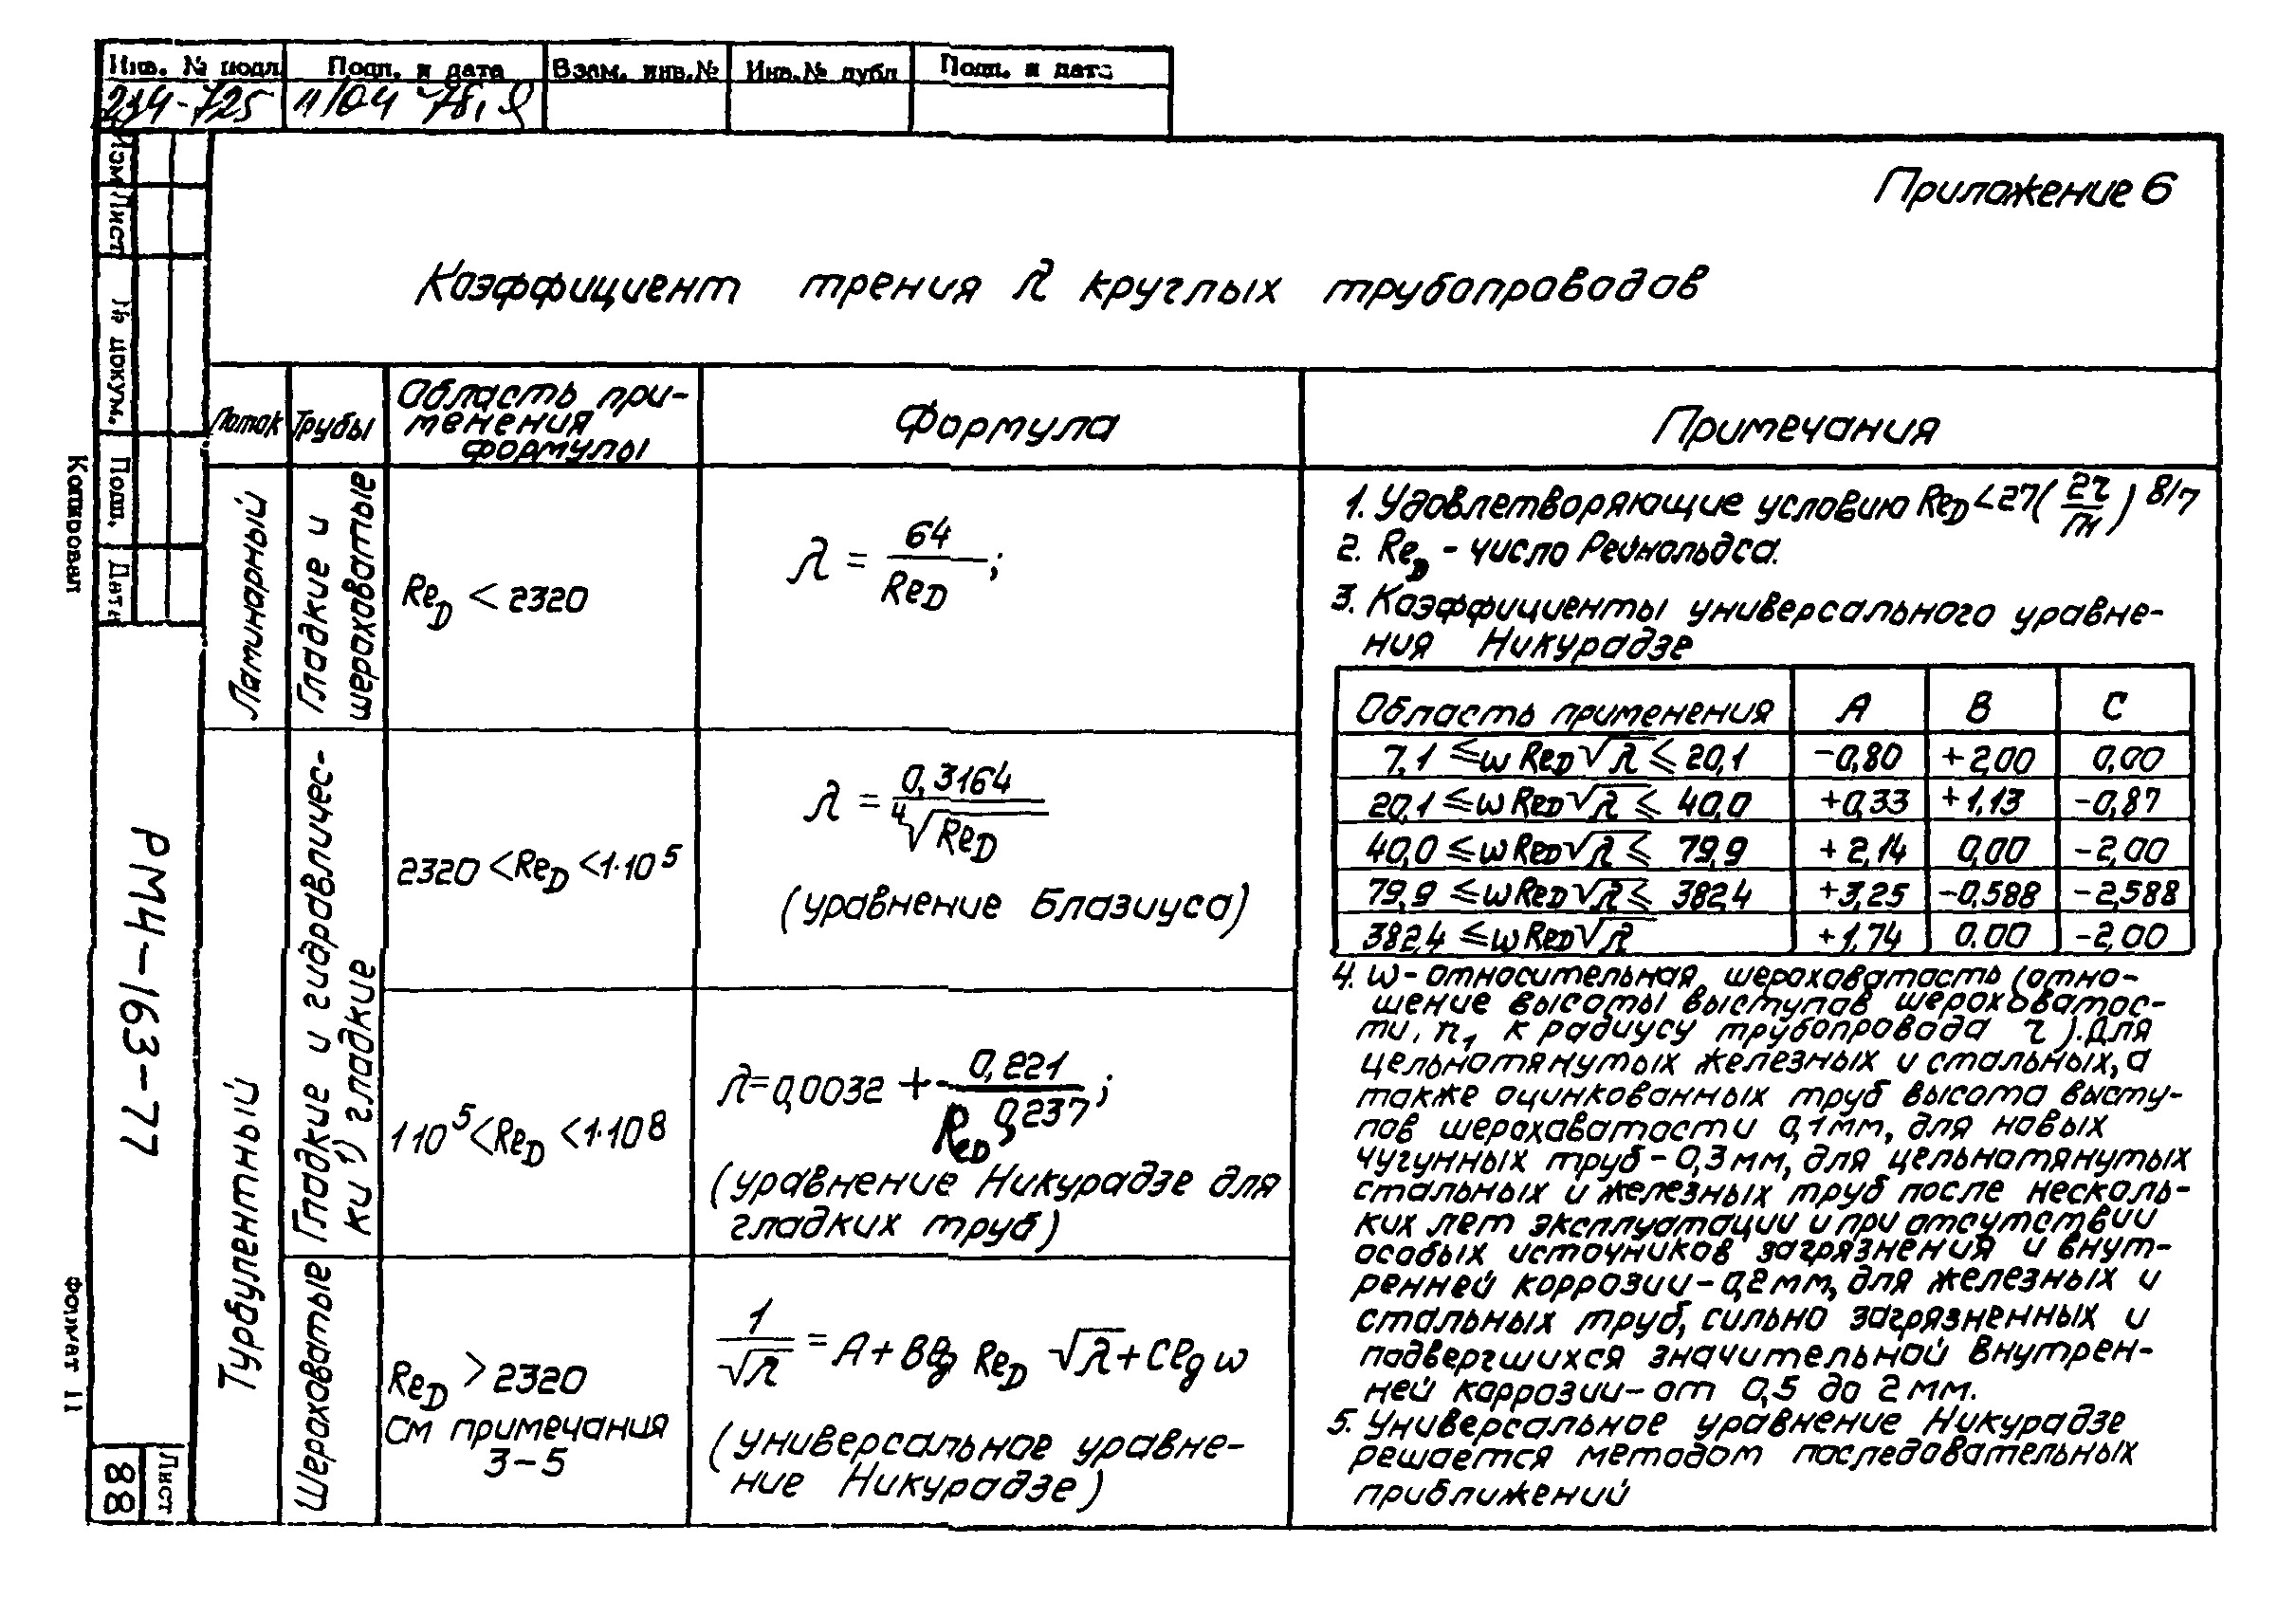 Инв. № подл. Подп. и дата Взам. инв.№ Инв.№ дубл Подп. и дата
234-725 11/04 78г
Изм Лист № докум. Подп. Дата
Копировал
РМ4-163-77
Формат 11
Лист
88
Приложение 6
Коэффициент трения λ круглых трубопроводов
Поток Трубы Область при-
менения
формулы
Формула
Примечания
Ламинарный
Гладкие и
шероховатые
Re_D < 2320
λ = 64/Re_D ;
Турбулентный
Гладкие и гидравличес-
ки 1) гладкие
2320 < Re_D < 1·10^5
λ = 0,3164/⁴√Re_D
(уравнение Блазиуса)
1 10^5 < Re_D < 1·10^8
λ=0,0032 + 0,221/Re_D^0,237 ;
(уравнение Никурадзе для
гладких труб)
Шероховатые
Re_D > 2320
См примечания
3-5
1/√λ = A + Blg Re_D √λ + Clg ω
(универсальное уравне-
ние Никурадзе)
1. Удовлетворяющие условию Re_D < 27(2r/n1)^8/7
2. Re_D - число Рейнольдса.
3. Коэффициенты универсального уравне-
ния Никурадзе
Область применения A B C
7,1 ⩽ ω Re_D √λ ⩽ 20,1 -0,80 +2,00 0,00
20,1 ⩽ ω Re_D √λ ⩽ 40,0 +0,33 +1,13 -0,87
40,0 ⩽ ω Re_D √λ ⩽ 79,9 +2,14 0,00 -2,00
79,9 ⩽ ω Re_D √λ ⩽ 382,4 +3,25 -0,588 -2,588
382,4 ⩽ ω Re_D √λ +1,74 0.00 -2,00
4. ω - относительная шероховатость (отно-
шение высоты выступов шероховатос-
ти, n1 к радиусу трубопровода r). Для
цельнотянутых железных и стальных, а
также оцинкованных труб высота высту-
пов шероховатости 0,1мм, для новых
чугунных труб - 0,3 мм, для цельнотянутых
стальных и железных труб после несколь-
ких лет эксплуатации и при отсутствии
особых источников загрязнения и внут-
ренней коррозии - 0,2 мм, для железных и
стальных труб, сильно загрязненных и
подвергшихся значительной внутрен-
ней коррозии - от 0,5 до 2 мм.
5. Универсальное уравнение Никурадзе
решается методом последовательных
приближений